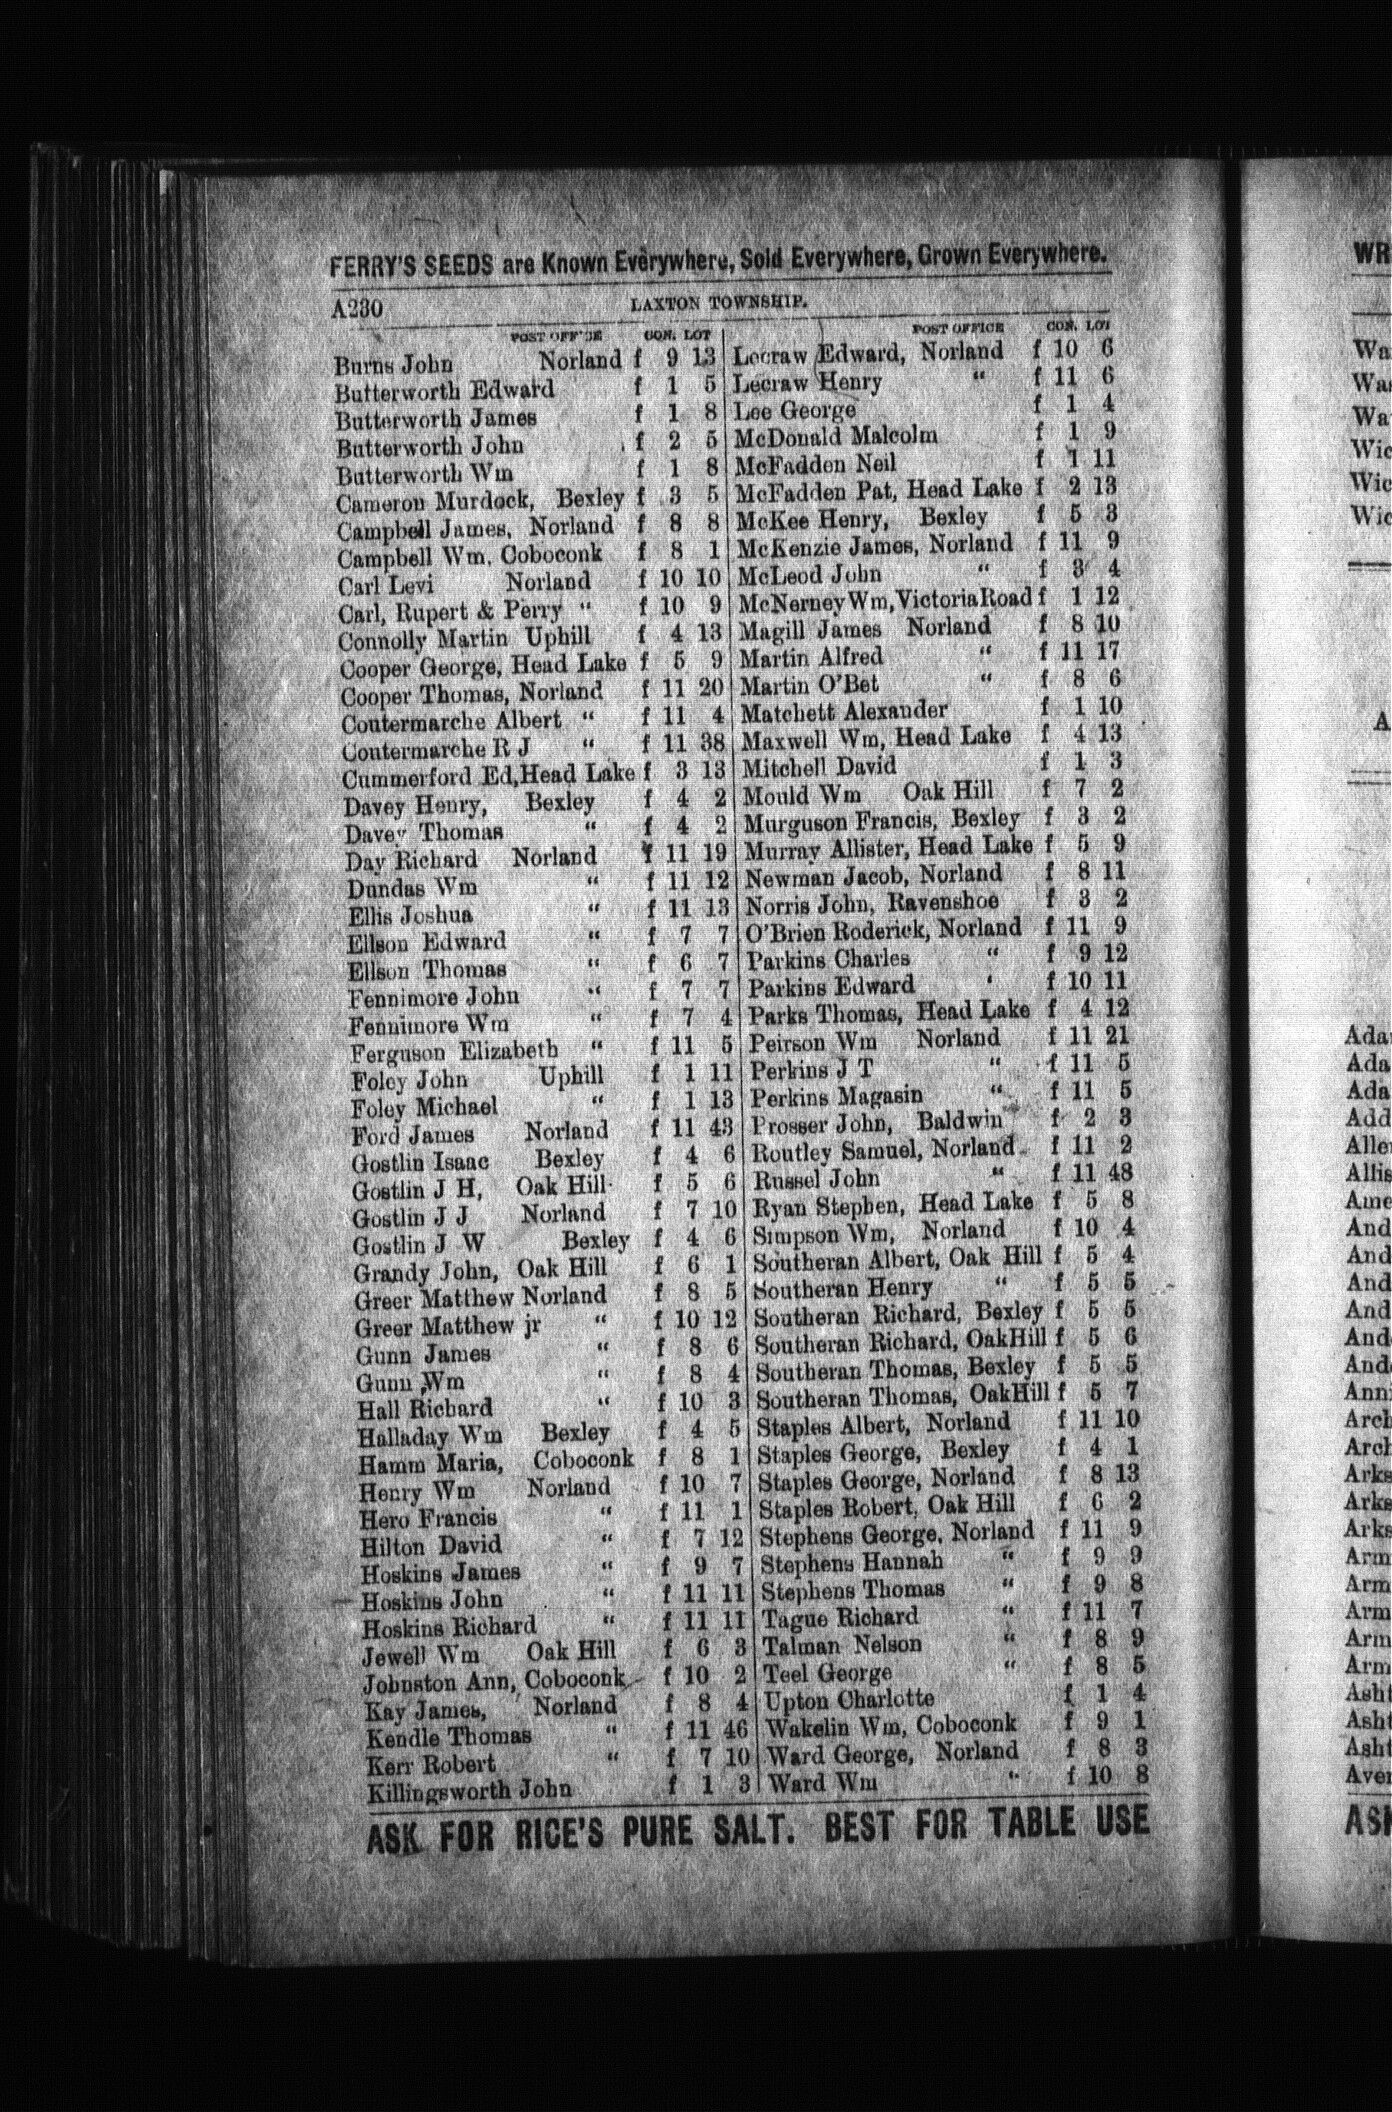 FERRY'S SEEDS are Known Everywhere, Sold Everywhere, Grown Everywhere.
A230 LAXTON TOWNSHIP.
POST OFFICE CON. LOT
Burns John Norland f 9 13
Butterworth Edward f 1 5
Butterworth James f 1 8
Butterworth John f 2 5
Butterworth Wm f 1 8
Cameron Murdock, Bexley f 3 5
Campbell James, Norland f 8 8
Campbell Wm, Coboconk f 8 1
Carl Levi Norland f 10 10
Carl, Rupert & Perry " f 10 9
Connolly Martin Uphill f 4 13
Cooper George, Head Lake f 5 9
Cooper Thomas, Norland f 11 20
Coutermarche Albert " f 11 4
Coutermarche R J " f 11 38
Cummerford Ed, Head Lake f 3 13
Davey Henry, Bexley f 4 2
Davey Thomas " f 4 2
Day Richard Norland f 11 19
Dundas Wm " f 11 12
Ellis Joshua " f 11 13
Ellson Edward " f 7 7
Ellson Thomas " f 6 7
Fennimore John " f 7 7
Fennimore Wm " f 7 4
Ferguson Elizabeth " f 11 5
Foley John Uphill f 1 11
Foley Michael " f 1 13
Ford James Norland f 11 43
Gostlin Isaac Bexley f 4 6
Gostlin J H, Oak Hill f 5 6
Gostlin J J Norland f 7 10
Gostlin J W Bexley f 4 6
Grandy John, Oak Hill f 6 1
Greer Matthew Norland f 8 5
Greer Matthew jr " f 10 12
Gunn James " f 8 6
Gunn Wm " f 8 4
Hall Richard " f 10 3
Halladay Wm Bexley f 4 5
Hamm Maria, Coboconk f 8 1
Henry Wm Norland f 10 7
Hero Francis " f 11 1
Hilton David " f 7 12
Hoskins James " f 9 7
Hoskins John " f 11 11
Hoskins Richard " f 11 11
Jewell Wm Oak Hill f 6 3
Johnston Ann, Coboconk f 10 2
Kay James, Norland f 8 4
Kendle Thomas " f 11 46
Kerr Robert " f 7 10
Killingsworth John f 1 3
POST OFFICE CON. LOT
Lecraw Edward, Norland f 10 6
Lecraw Henry " f 11 6
Lee George f 1 4
McDonald Malcolm f 1 9
McFadden Neil f 1 11
McFadden Pat, Head Lake f 2 13
McKee Henry, Bexley f 5 3
McKenzie James, Norland f 11 9
McLeod John " f 3 4
McNerney Wm, Victoria Road f 1 12
Magill James Norland f 8 10
Martin Alfred " f 11 17
Martin O'Bet " f 8 6
Matchett Alexander f 1 10
Maxwell Wm, Head Lake f 4 13
Mitchell David f 1 3
Mould Wm Oak Hill f 7 2
Murguson Francis, Bexley f 3 2
Murray Allister, Head Lake f 5 9
Newman Jacob, Norland f 8 11
Norris John, Ravenshoe f 3 2
O'Brien Roderick, Norland f 11 9
Parkins Charles " f 9 12
Parkins Edward ' f 10 11
Parks Thomas, Head Lake f 4 12
Peirson Wm Norland f 11 21
Perkins J T " f 11 5
Perkins Magasin " f 11 5
Prosser John, Baldwin f 2 3
Routley Samuel, Norland f 11 2
Russel John " f 11 48
Ryan Stephen, Head Lake f 5 8
Simpson Wm, Norland f 10 4
Southeran Albert, Oak Hill f 5 4
Southeran Henry " f 5 5
Southeran Richard, Bexley f 5 5
Southeran Richard, Oak Hill f 5 6
Southeran Thomas, Bexley f 5 5
Southeran Thomas, Oak Hill f 5 7
Staples Albert, Norland f 11 10
Staples George, Bexley f 4 1
Staples George, Norland f 8 13
Staples Robert, Oak Hill f 6 2
Stephens George, Norland f 11 9
Stephens Hannah " f 9 9
Stephens Thomas " f 9 8
Tague Richard " f 11 7
Talman Nelson " f 8 9
Teel George " f 8 5
Upton Charlotte f 1 4
Wakelin Wm, Coboconk f 9 1
Ward George, Norland f 8 3
Ward Wm " f 10 8
ASK FOR RICE'S PURE SALT. BEST FOR TABLE USE